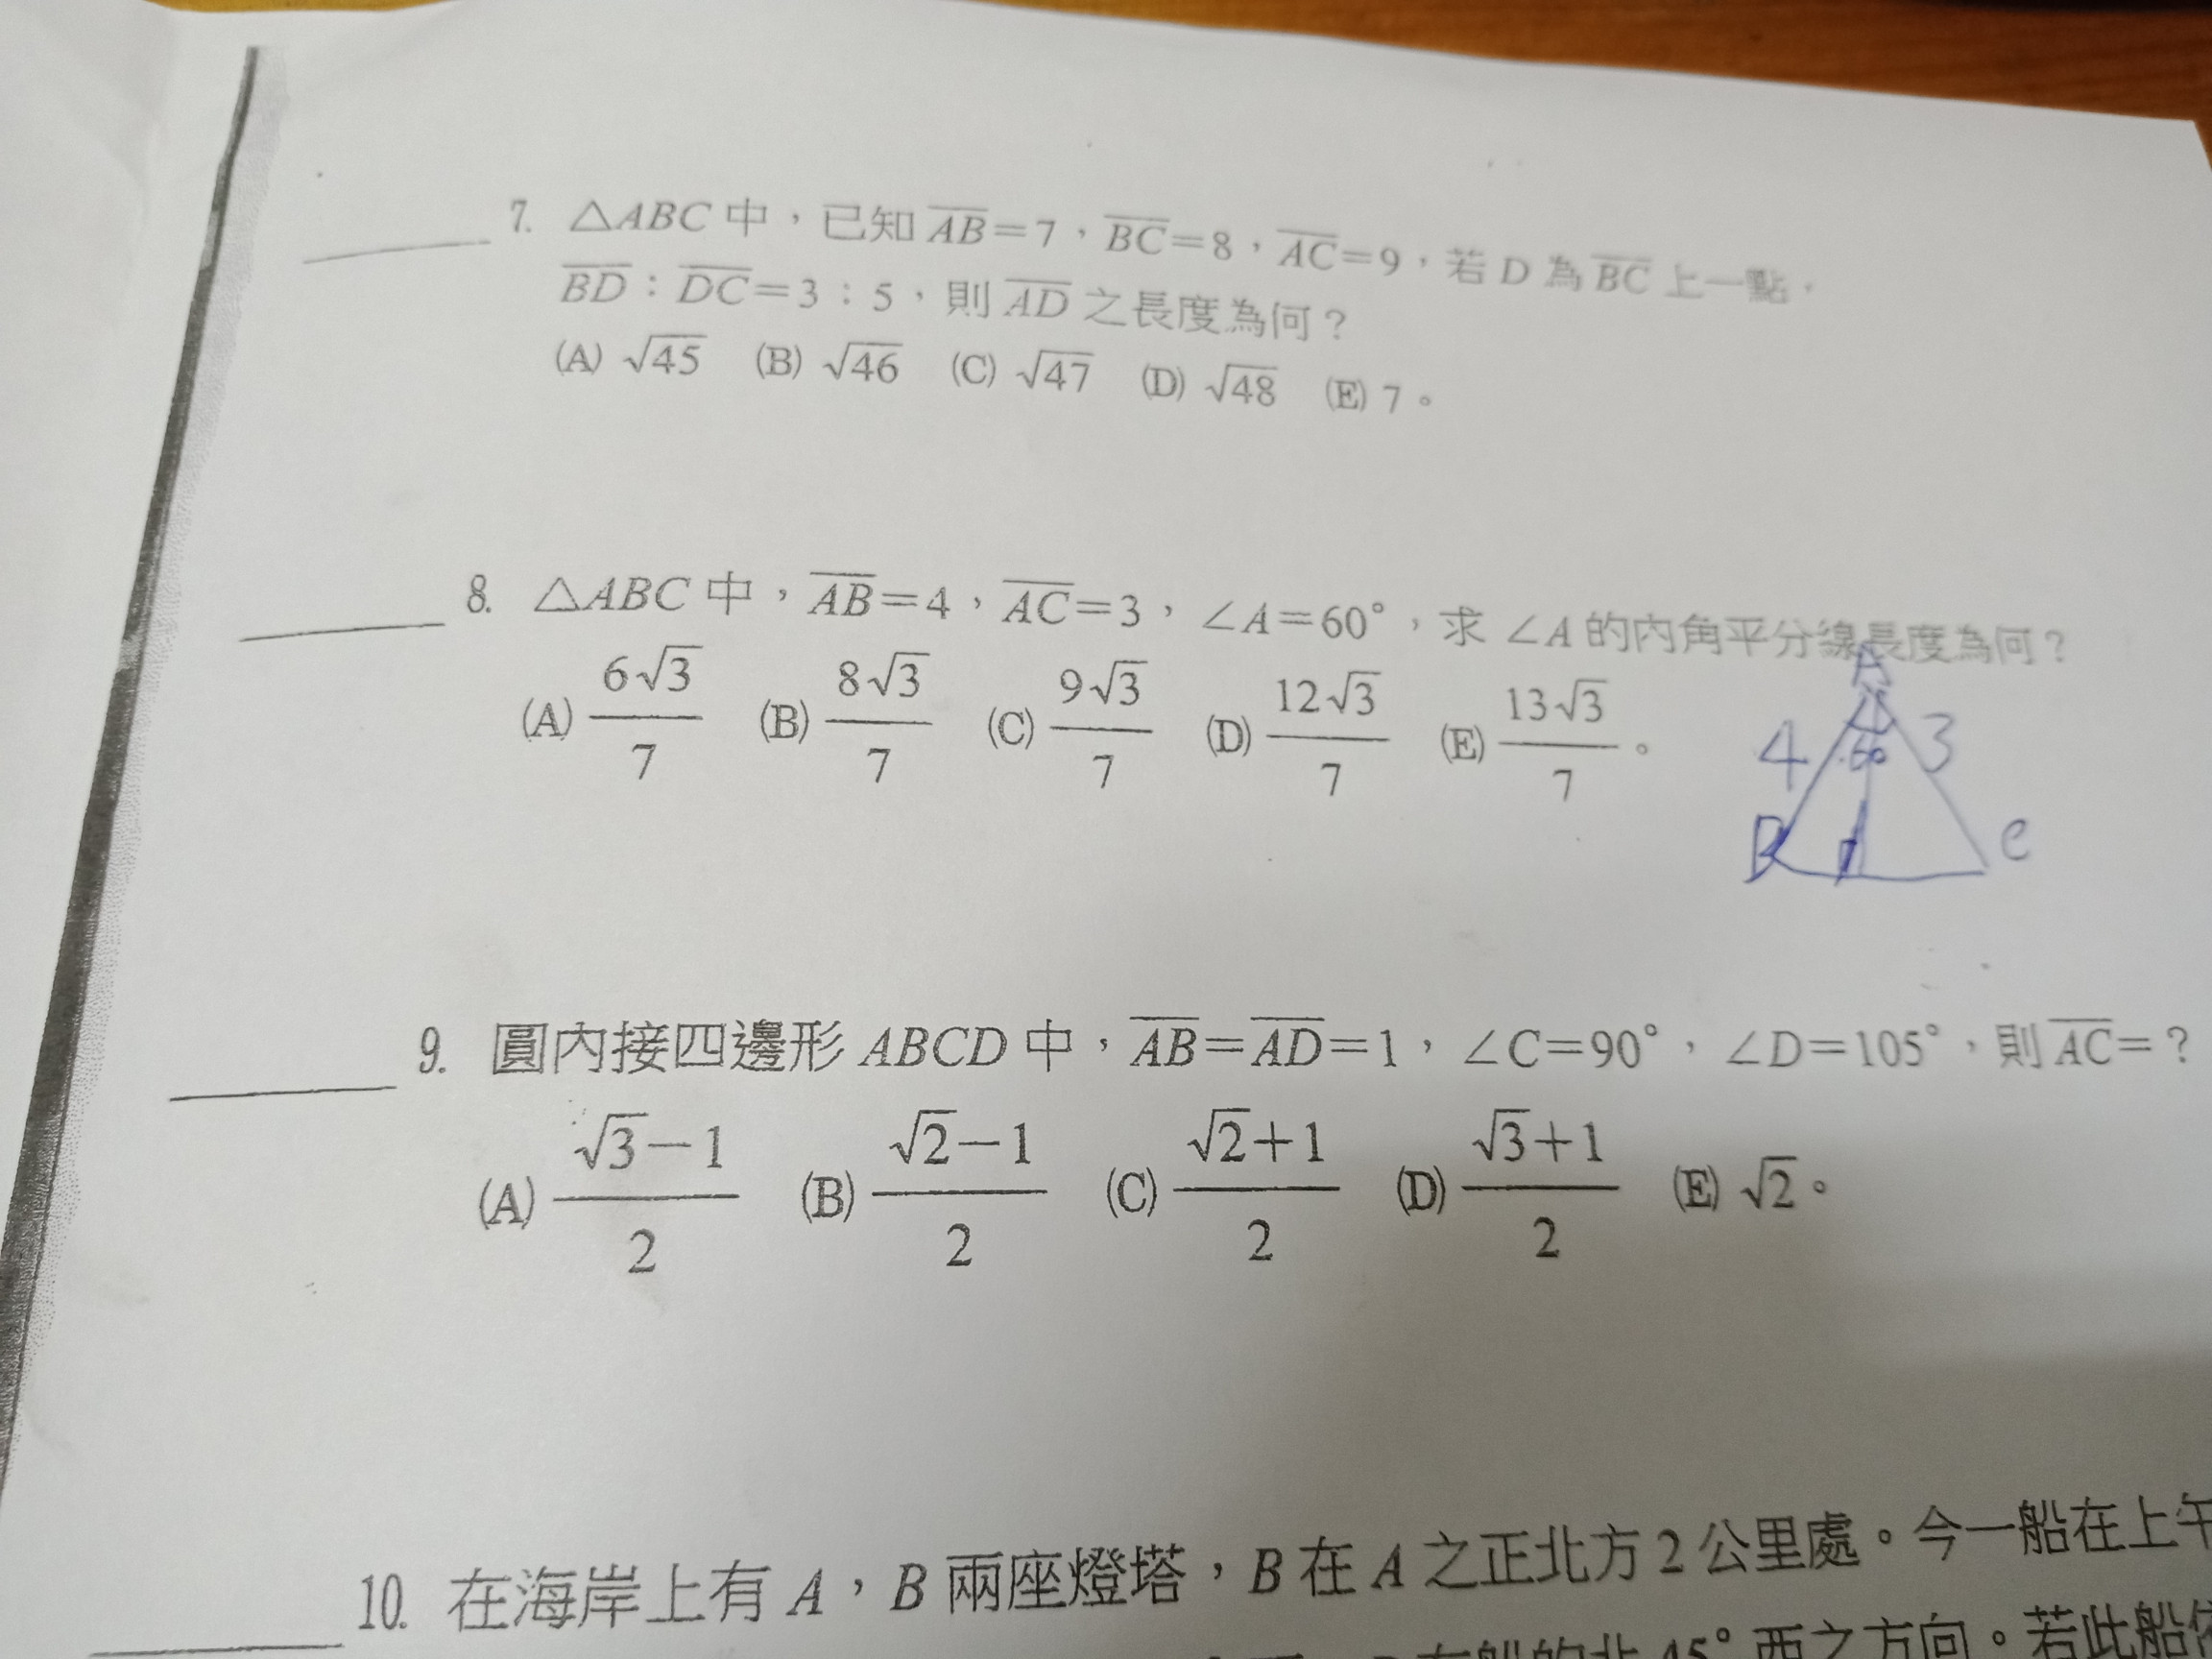 7. △ABC 中，已知 AB=7，BC=8，AC=9，若 D 為 BC 上一點，
BD：DC=3：5，則 AD 之長度為何？
(A) √45 (B) √46 (C) √47 (D) √48 (E) 7。
8. △ABC 中，AB=4，AC=3，∠A=60°，求 ∠A 的內角平分線長度為何？
(A) 6√3/7 (B) 8√3/7 (C) 9√3/7 (D) 12√3/7 (E) 13√3/7。
A
4 60 3
B D C
9. 圓內接四邊形 ABCD 中，AB=AD=1，∠C=90°，∠D=105°，則 AC=？
(A) √3−1/2 (B) √2−1/2 (C) √2+1/2 (D) √3+1/2 (E) √2。
10. 在海岸上有 A，B 兩座燈塔，B 在 A 之正北方 2 公里處。今一船在上午
在船的北 45° 西之方向。若此船